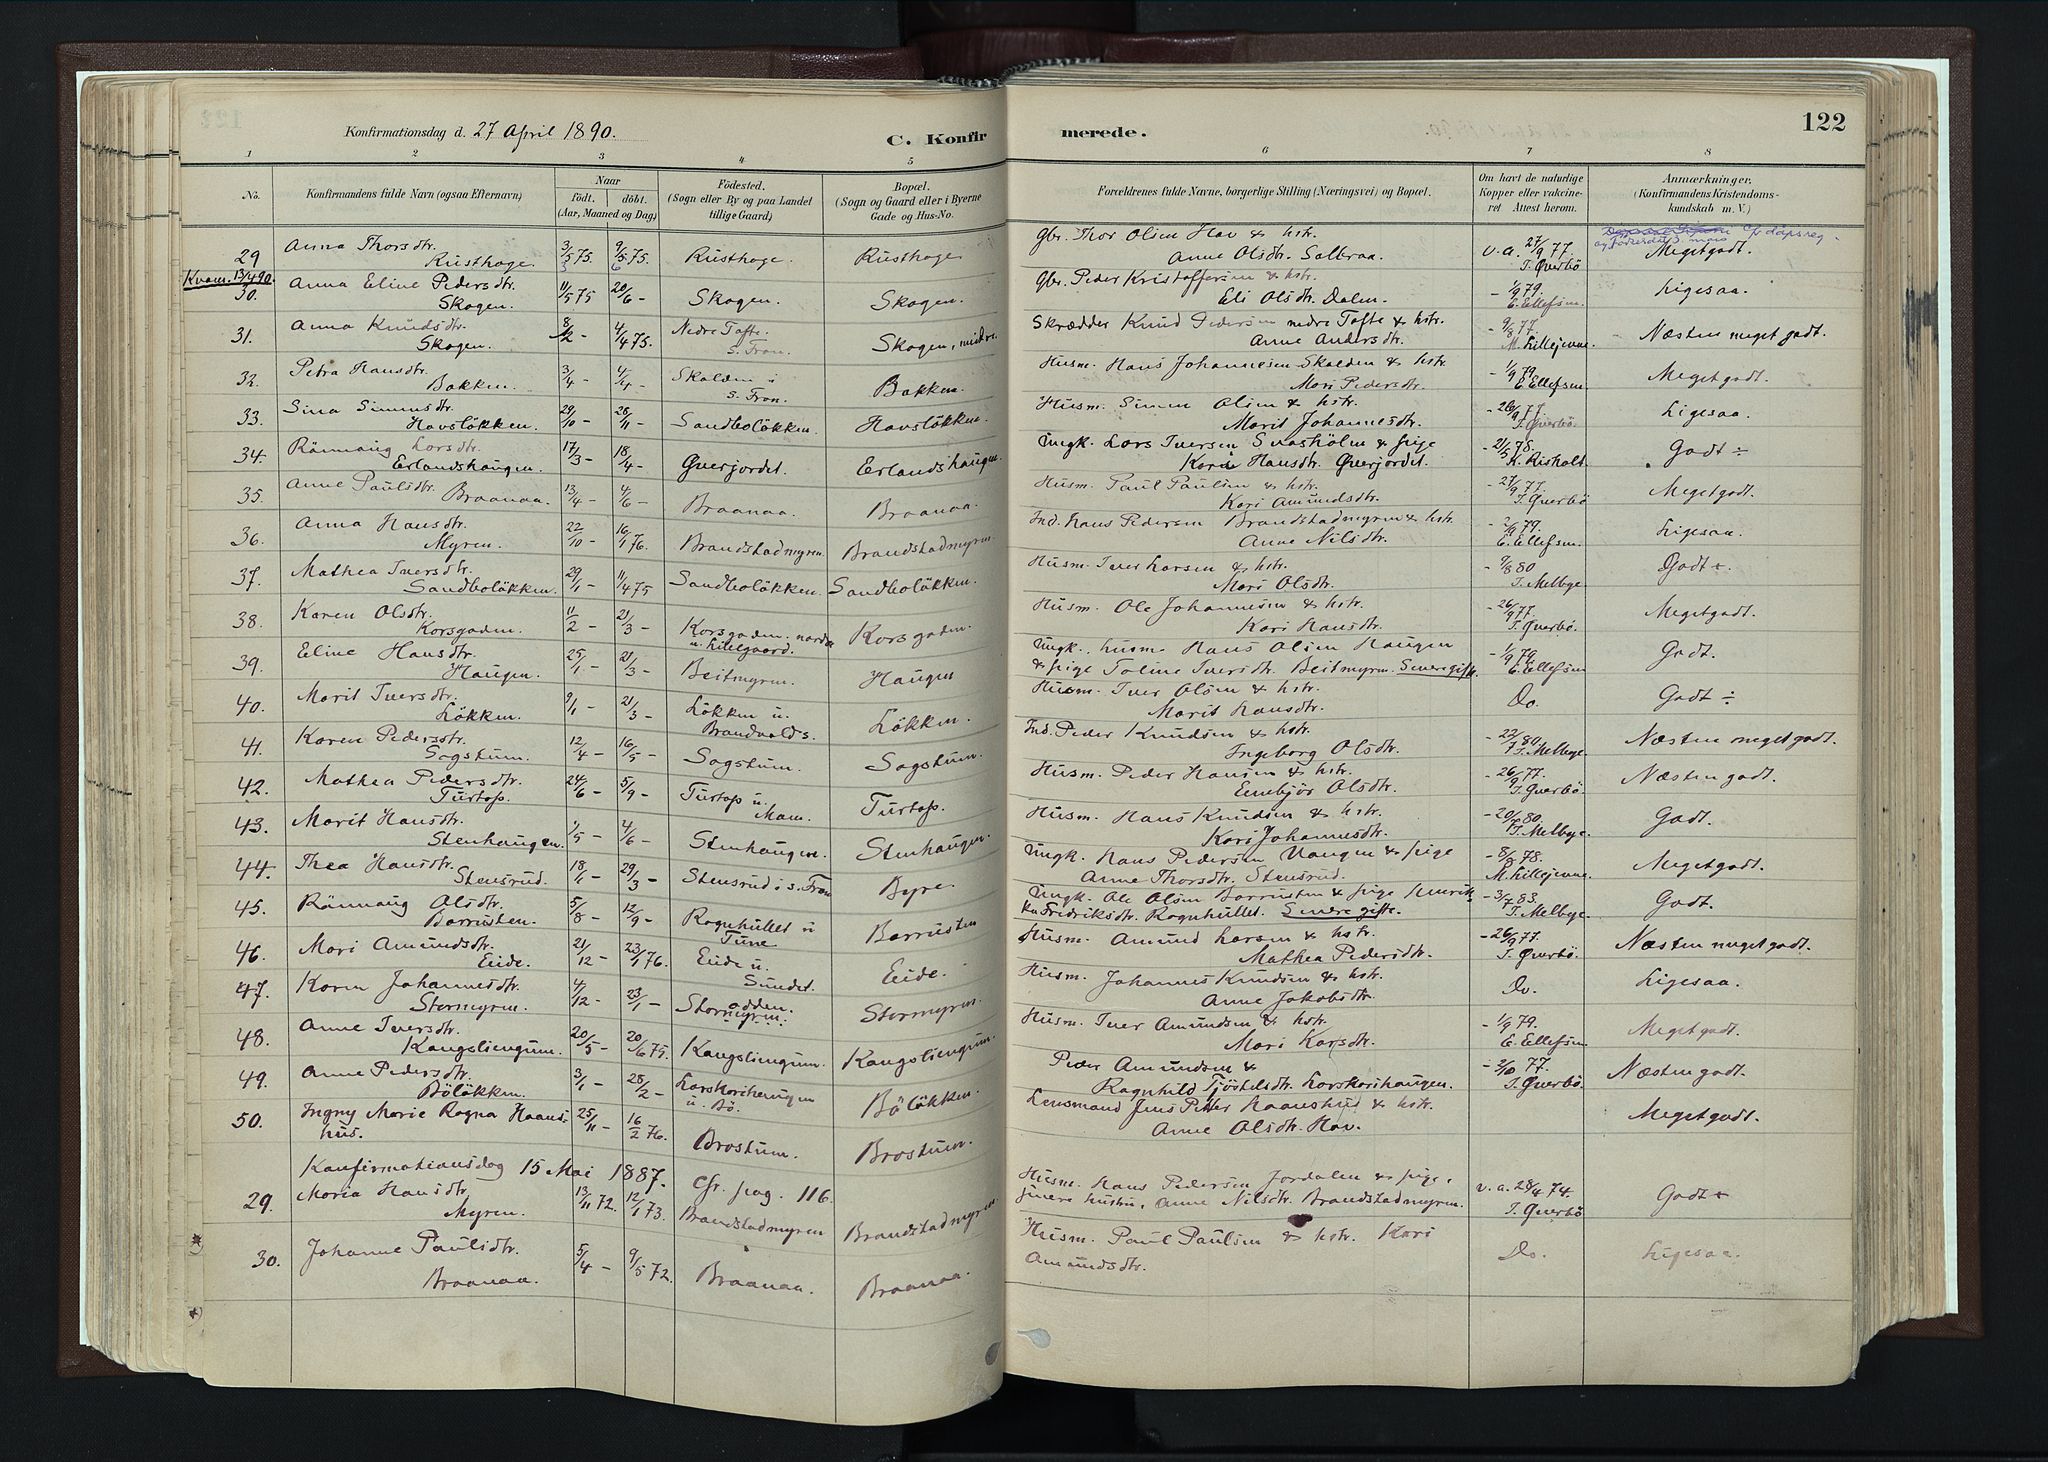 Konfirmationsdag d. 27 April 1890.
C. Konfirmerede.
122
1 2 3 4 5 6 7 8
No.
Konfirmandens fulde Navn (ogsaa Efternavn)
Naar
födt. döbt.
(Aar, Maaned og Dag)
Födested.
(Sogn eller By og paa Landet
tillige Gaard)
Bopæl.
(Sogn og Gaard eller i Byerne
Gade og Hus-No.
Forældrenes fulde Navne, borgerlige Stilling (Næringsvei) og Bopæl.
Om havt de naturlige
Kopper eller vakcine-
ret Attest herom.
Anmærkninger.
(Konfirmandens Kristendoms-
kundskab m. V.)
29 Anna Thorsdtr. 3/5 75. 9/5 75. Rusthage. Rusthage Gbr. Thor Olsen Hov & hstr. v.a. 27/9 77. Megetgodt.
Rusthage. Anne Olsdtr. Solbraa. T. Överbö
Kvam. 13/4 90.
30. Anna Eline Pedersdtr. 11/5 75 20/6 – Skogen. Skogen. Gbr. Peder Kristoffersen & hstr. – 1/9 79. Ligesaa.
Skogen. Eli Olsdtr. Dalen. E. Ellefsen.
31. Anna Knudsdtr. 8/2 – 4/4 75. Nedre Tofte. Skogen, midre. Skrædder Knud Pedersen nedre Tofte & hstr. – 9/8 77. Næsten meget godt.
Skogen. S. Fron. Anne Andersdtr. M. Lillejevne.
32. Petra Hansdtr. 3/4 – 4/4 – Skalden i Bakken. Husm. Hans Johannesen Skalden & hstr. – 1/9 79. Megetgodt.
Bakken. S. Fron. Mari Pedersdtr. E. Ellefsen
33. Sina Simensdtr. 29/10 – 28/11 – Sandbolökken. Havslökken. Husm. Simen Olsen & hstr. – 26/9 77. Ligesaa.
Havslökken. Marit Johannesdtr. T. Överbö.
34. Rönnaug Larsdtr. 17/3 – 18/4 – Överjordet. Erlandshaugen. Ungk. Lars Iversen Svasholm & pige – 21/5 78. Godt ÷
Erlandshaugen. Kari Hansdtr. Överjordet. K. Risholt.
35. Anne Paulsdtr. Braanaa. 13/4 – 4/6 – Braanaa. Braanaa. Husm. Paul Paulsen & hstr. – 27/9 77. Megetgodt.
Kari Amundsdtr. T. Överbö
36. Anna Hansdtr. 22/10 – 16/1 76. Brandstadmyren. Brandstadmyren. Ind. Hans Pedersen Brandstadmyren & hstr. – 2/9 79. Ligesaa.
Myren. Anne Nilsdtr. E. Ellefsen.
37. Mathea Iversdtr. 29/1 – 11/4 75 Sandbolökken. Sandbolökken. Husm. Iver Larsen & hstr. – 9/8 80 Godt +.
Sandbolökken. Mari Olsdtr. T. Melbye.
38. Karen Olsdtr. 11/2 – 21/3 – Korsgaden. nordre Korsgaden. Husm. Ole Johannesen & hstr. – 26/9 77. Megetgodt.
Korsgaden. u. Lillegaard. Kari Hansdtr. T. Överbö.
39. Eline Hansdtr. 25/1 – 21/3 – Beitmyren. Haugen Ungk. husm. Hans Olsen Haugen – 1/9 79. Godt.
Haugen. & pige Toline Iversdtr. Beitmyren. Senere gifte. E. Ellefsen
40. Marit Iversdtr. 9/1 – 21/3 – Lökken u. Lökken. Husm. Iver Olsen & hstr. Do. Godt ÷
Lökken. Brandvolds. Marit Hansdtr.
41. Karen Pedersdtr. 12/4 – 16/5 – Sogstuen. Sogstuen. Ind. Peder Knudsen & hstr. – 22/7 80. Næsten megetgodt.
Sogstuen. Ingeborg Olsdtr. T. Melbye.
42. Mathea Pedersdtr. 24/6 – 5/9 – Turtop u. Turtop. Husm. Peder Hansen & hstr. – 26/9 77. Næsten godt.
Turtop. Moen. Embjör Olsdtr. T. Överbö.
43. Marit Hansdtr. 1/5 – 4/6 – Stenhaugen. Stenhaugen. Husm. Hans Knudsen & hstr. – 20/7 80. Godt.
Stenhaugen. Kari Johannesdtr. T. Melbye.
44. Thea Hansdtr. 18/1 – 29/3 – Stensrud i S. Fron Byre. Ungk. Hans Pedersen Haugen & pige – 8/6 78. Megetgodt.
Stensrud. Anne Thorsdtr. Stensrud. M. Lillejevne.
45. Rönnaug Olsdtr. 5/8 – 12/9 – Rognhullet u Borrusten Ungk. Ole Olsen Borrusten & pige Henrik – 3/7 83. Godt.
Borrusten. Tune ka Fredriksdtr. Rognhullet. Senere gifte. T. Melbye
46. Mari Amundsdtr. 21/12 – 23/1 76. Eide u. Eide. Husm. Amund Larsen & hstr. – 26/9 77. Næsten megetgodt.
Eide. Sundet. Mathea Pedersdtr. T. Överbö.
47. Karen Johannesdtr. 4/12 – 23/1 – Stormyren. Stormyren. Husm. Johannes Knudsen & hstr. Do. Ligesaa.
Stormyren. odden. Anne Jakobsdtr.
48. Anne Iversdtr. 20/5 – 20/6 75. Kangsliengum. Kangsliengum. Husm. Iver Amundsen & hstr. – 1/9 79. Megetgodt.
Kangsliengum. Mari Larsdtr. E. Ellefsen
49. Anne Pedersdtr. 3/1 – 28/2 – Larskorihaugen Bölökken. Peder Amundsen & – 2/10 77. Næsten godt.
Bölökken. u. Bö. Ragnhild Tjöstelsdtr. Larskorihaugen. T. Överbö.
50. Ingny Marie Ragna Haans- 25/11 – 16/2 76. Brostuen. Brostuen. Lensmand Jens Petter Haanshus & hstr. Megetgodt.
hus. Anne Olsdtr. Hov.
Konfirmationsdag 15 Mai 1887. Cfr. pag. 116.
29. Maria Hansdtr. 13/11 72. 12/1 73. Brandstadmyren Brandstadmyren Husm. Hans Pedersen Jordalen & pige, v.a. 28/4 74. Godt +
Myren. senere hustru, Anne Nilsdtr. Brandstadmyren. T. Överbö
30. Johanne Paulsdtr. 5/4 – 9/5 72. Braanaa. Braanaa. Husm. Paul Paulsen & hstr. Kari Do. Ligesaa.
Braanaa. Amundsdtr.